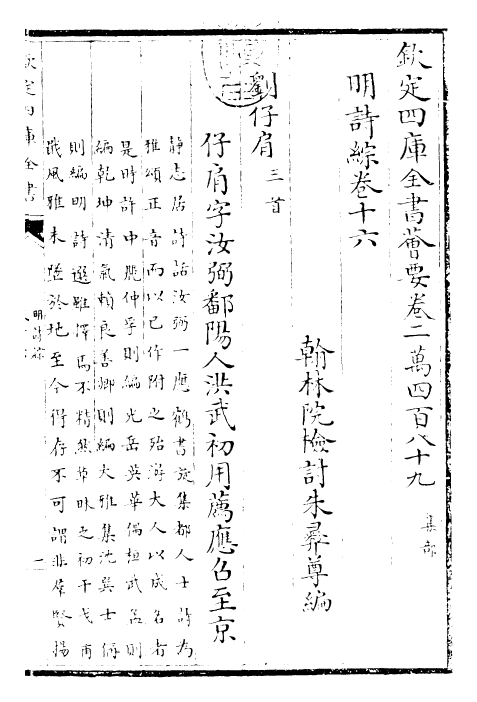 欽定四庫全書薈要卷二萬四百八十九
集部
明詩綜卷十六
翰林院檢討朱彝尊編
劉仔肩三首
仔肩字汝弼鄱陽人洪武初用薦應召至京
靜志居詩話汝弼一應鶴書旋集都人士詩為
雅頌正音而以己作附之殆游大人以成名者
是時許中麓仲孚則編光岳英華偶桓武孟則
編乾坤清氣賴良善卿則編大雅集沈巽士偁
則編明詩選雖擇焉不精然草昧之初干戈甫
戢風雅未墜於地至今得存不可謂非羣賢揚
欽定四庫全書
明詩綜
一